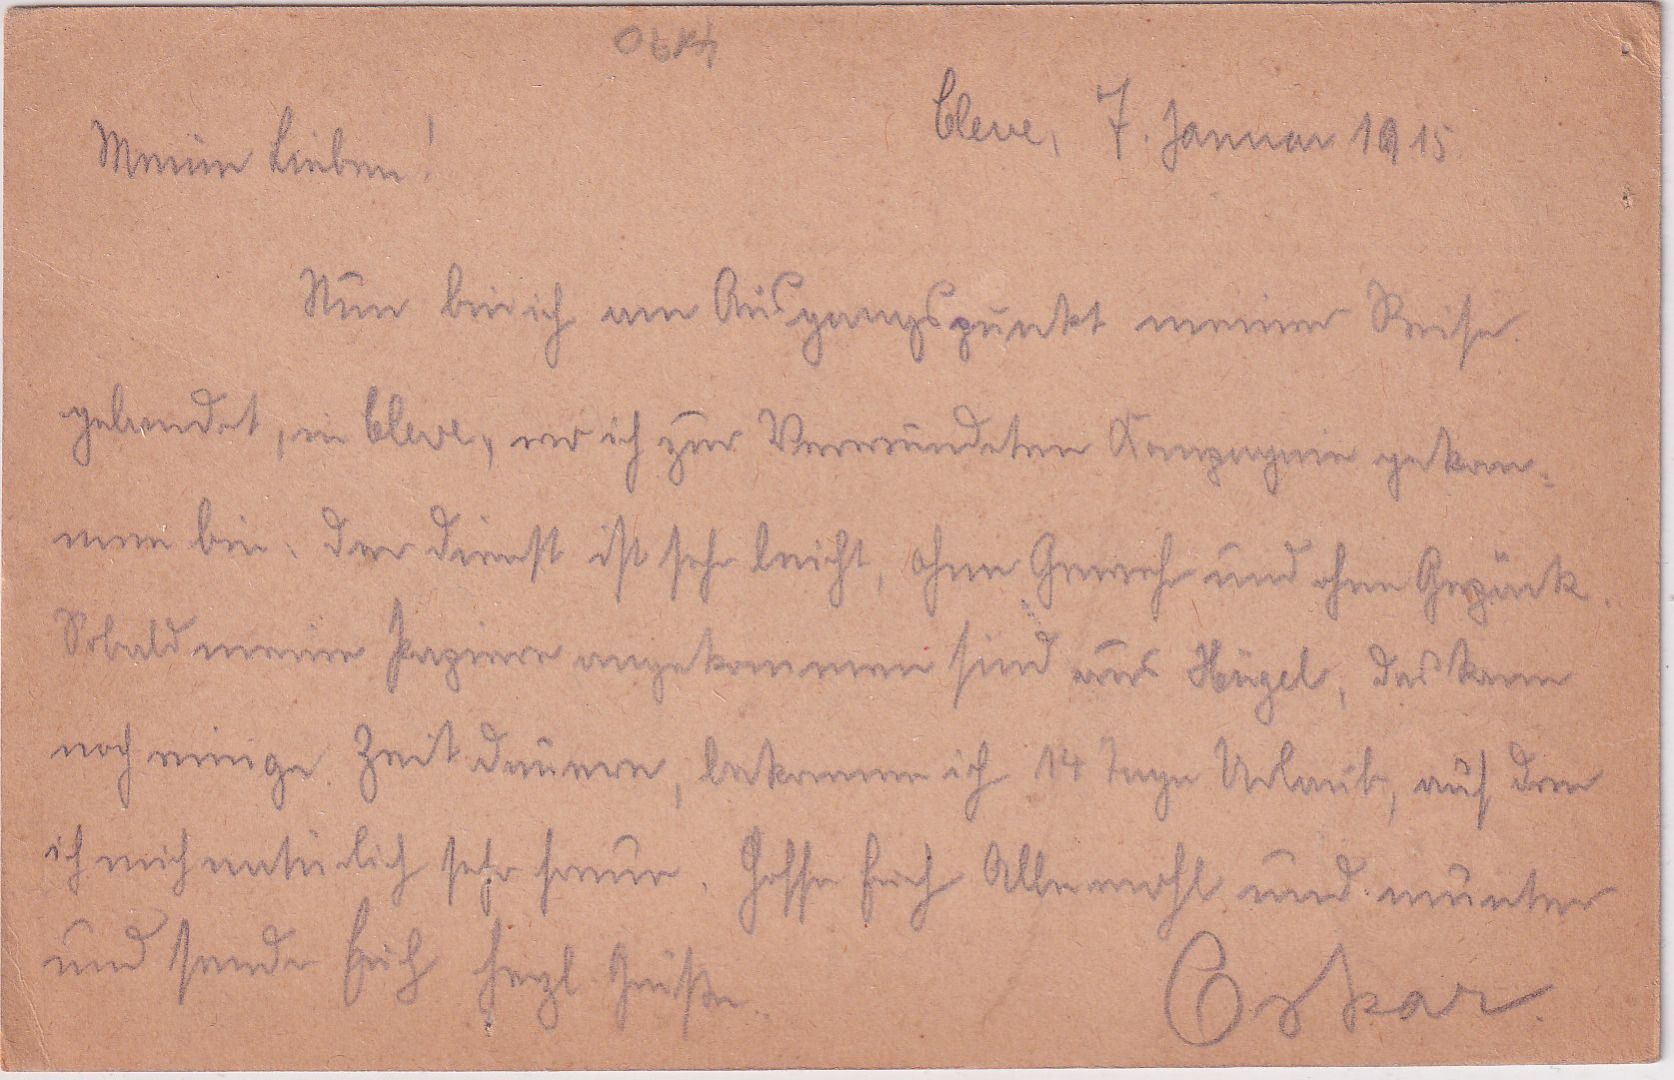 Cleve, 7. Januar 1915
Meine Lieben!
Nun bin ich am Ausgangspunkt meiner Reise
gelandet, in Cleve, wo ich zur Verwundeten Kompagnie gekom-
men bin. Der Dienst ist sehr leicht, ohne Gewehr und ohne Gepäck.
Sobald meine Papiere angekommen sind aus Hügel, das kann
noch einige Zeit dauern, bekomme ich 14 Tage Urlaub, auf den
ich mich natürlich sehr freue. Hoffe Euch Alle wohl und munter
und sende Euch herzl. Grüße.
Oskar.